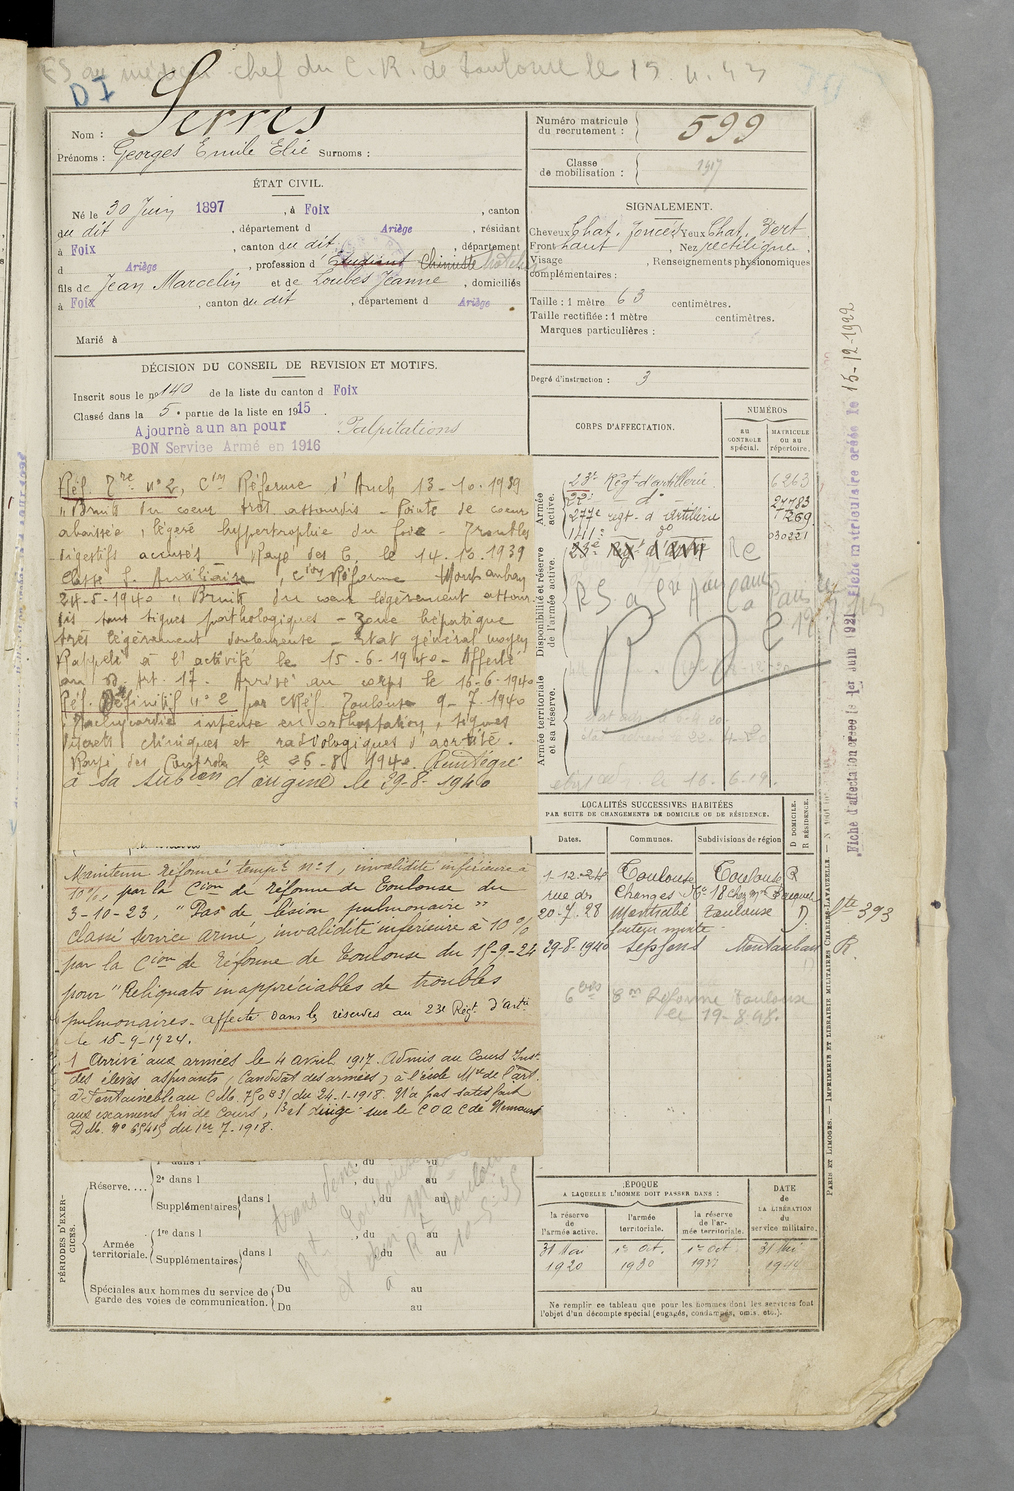 ES au médecin chef du C. R. de Toulouse le 15. 4. 43
DI
Nom : Serres
Prénoms : Georges Emile Elie Surnoms :
ÉTAT CIVIL.
Né le 30 Juin 1897 , à Foix , canton
du dit , département d Ariège , résidant
à Foix , canton du dit , département
d Ariège , profession d Etudiant Chimiste
fils de Jean Marcelin et de Loubes Jeanne , domiciliés
à Foix , canton du dit , département d Ariège
Marié à
DÉCISION DU CONSEIL DE REVISION ET MOTIFS.
Inscrit sous le no 140 de la liste du canton d Foix
Classé dans la 5e partie de la liste en 1915 .
Ajourné a un an pour Palpitations
BON Service Armé en 1916
Réf. Tre n°2, Cion Réforme d'Auch 13-10-1939
"Bruits du coeur trot assourdis - Pointe de coeur
abaissée, légère hypertrophie du foie - Troubles
digestifs accusés Rayé des C. le 14.10.1939
Classé S. Auxiliaire , Cion Réforme Montauban
24-5-1940 "Bruits du coeur légèrement assour
dis sans signes pathologiques - zone hépatique
très légèrement douloureuse - Etat général moyen
Rappelé à l'activité le 15-6-1940 - Affecté
au D. Art. 17 - Arrivé au corps le 16-6-1940
Réf. Définitif n°2 par Réf. Toulouse 9-7-1940
Tachycardie intense en orthostation, signes
discrets cliniques et radiologiques d'aortite.
Rayé des Controles le 26-8-1940. Réintégré
à sa subdon d'origine le 29-8-1940
Maintenu réformé tempre n°1, invalidité inférieure à
10%, par la Cion de réforme de Toulouse du
3-10-23, "Pas de lésion pulmonaire"
Classé service armé, invalidité inférieure à 10%
par la Cion de réforme de Toulouse du 15-9-24
pour "Reliquats inappréciables de troubles
pulmonaires. Affecté dans les réserves au 23e Régt d'Artie
le 16-9-1924.
1 Arrivé aux armées le 4 avril 1917. Admis au Cours Inst.
des élèves aspirants, (Candidat des armées) à l'école Mre de l'art.
à Fontainebleau du 24.1.1918. N'a pas satisfait
aux examens fin de cours, est dirigé sur le COAC de Nemours
D.M. n° 65415 du 1er 7.1918.
PÉRIODES D'EXERCICES.
Réserve....
1re dans l , du au
2e dans l , du au
Supplémentaires dans l du au
Armée territoriale.
1re dans l , du au
Supplémentaires dans l du au
Spéciales aux hommes du service de garde des voies de communication. Du au
Du au
10-5-35
Numéro matricule du recrutement : 599
Classe de mobilisation : 1917
SIGNALEMENT.
Cheveux Chat. foncés Yeux Chat. Vert
Front haut , Nez rectiligne
Visage , Renseignements physionomiques
complémentaires :
Taille : 1 mètre 63 centimètres.
Taille rectifiée : 1 mètre centimètres.
Marques particulières :
Degré d'instruction : 3
CORPS D'AFFECTATION.
NUMÉROS
AU CONTROLE spécial.
MATRICULE OU AU répertoire.
Armée active.
23e Régt d'artillerie 6263
22e do 24783
277e régt d'Artillerie 1269
030221
23e Régt d'Artie RC
Disponibilité et réserve de l'armée active.
Armée territoriale et sa réserve.
R. D
LOCALITÉS SUCCESSIVES HABITÉES
PAR SUITE DE CHANGEMENTS DE DOMICILE OU DE RÉSIDENCE.
Dates. Communes. Subdivisions de région
D DOMICILE. R RÉSIDENCE.
1-12-24 Toulouse Toulouse R
rue des Changes No 18 chez Mr
20-7-28 Toulouse D
29-8-1940 Septfonds Montauban R.
Cion Réforme Toulouse
le 19-8-48.
ÉPOQUE
A LAQUELLE L'HOMME DOIT PASSER DANS :
DATE de LA LIBÉRATION du service militaire.
la réserve de l'armée active.
l'armée territoriale.
la réserve de l'armée territoriale.
31 Mai 1920
1er Oct. 1930
1er Oct. 1937
31 Mai 1944
Ne remplir ce tableau que pour les hommes dont les services font
l'objet d'un décompte spécial (engagés, condamnés, omis, etc.).
Fiche d'affectation créée le 1er Juin 1921. Fiche matriculaire créée le 15-12-1922
PARIS ET LIMOGES. — IMPRIMERIE ET LIBRAIRIE MILITAIRES CHARLES-LAVAUZELLE.